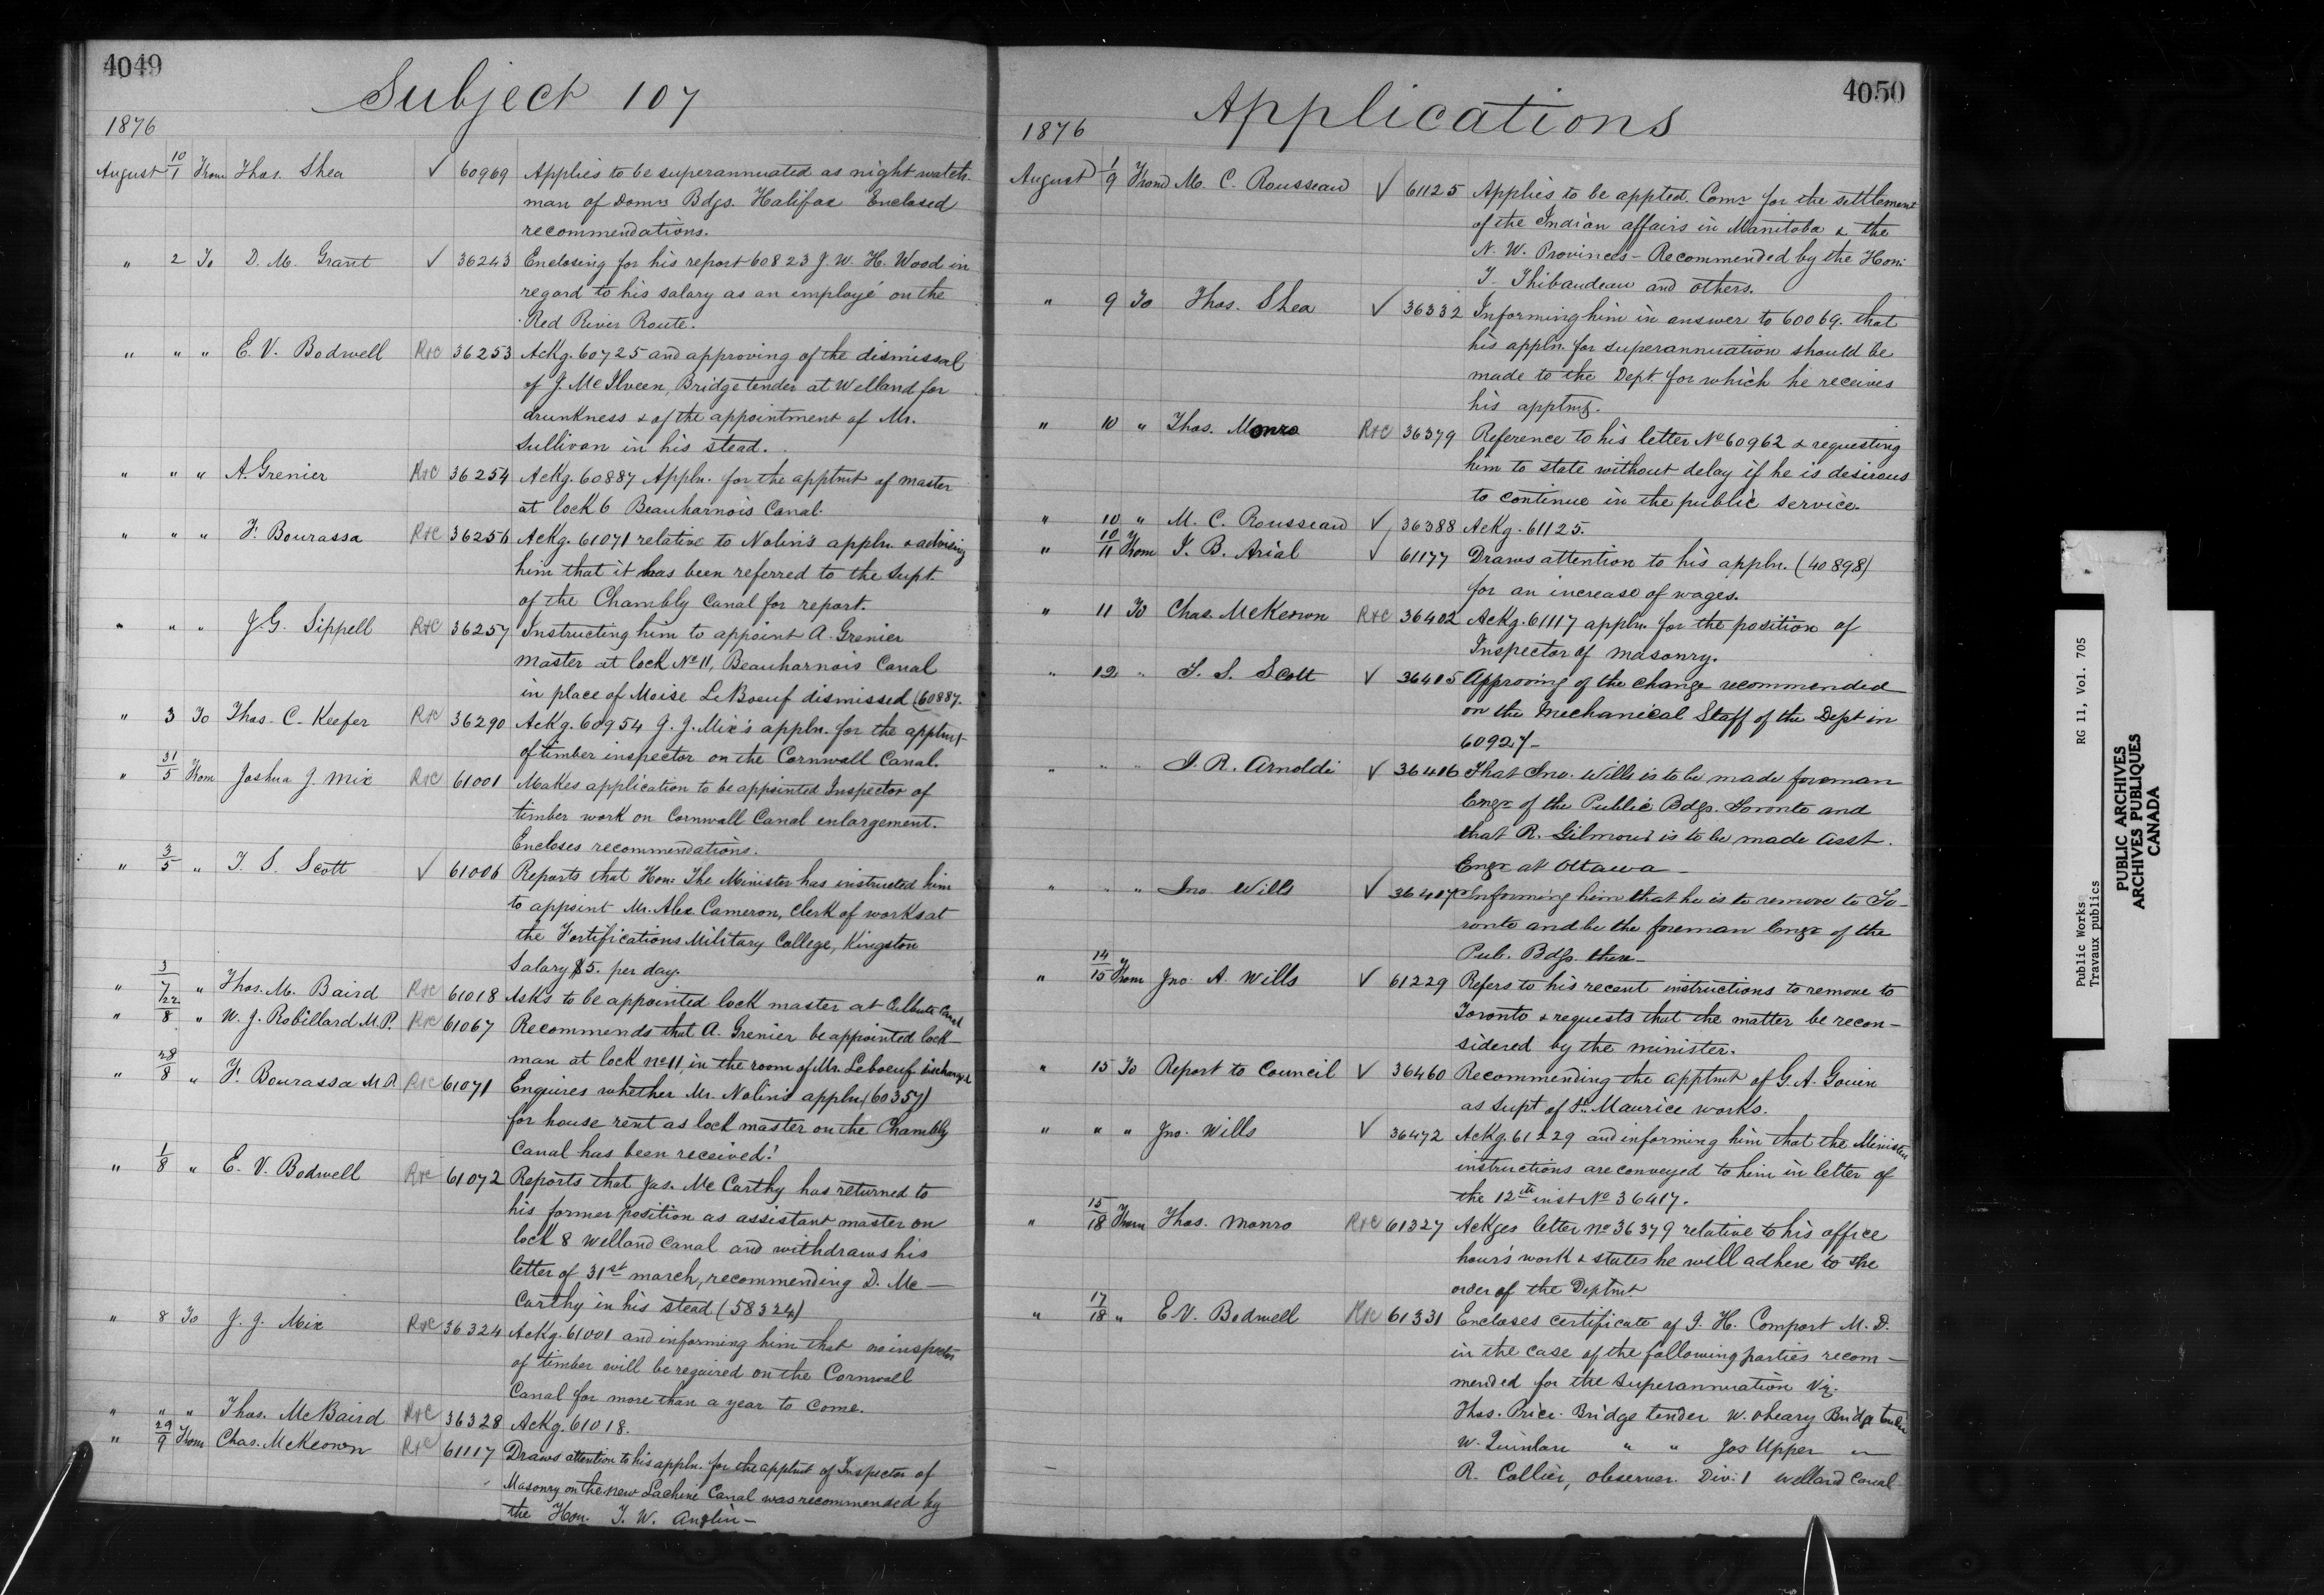 4049
Subject 107
1876
August 10/1 From Thos. Shea ✓ 60969 Applies to be superannuated as night watch-
man of Domn Bdgs. Halifax Enclosed
recommendations.
" 2 To D. M. Grant ✓ 36243 Enclosing for his report 60823 J. W. H. Wood in
regard to his salary as an employé on the
Red River Route.
" " " E. V. Bodwell R&C 36253 Ackg. 60725 and approving of the dismissal
of J. McIlveen, Bridge tender at Welland for
drunkness & of the appointment of Mr.
Sullivan in his stead.
" " " A. Grenier R&C 36254 Ackg. 60887 Appln. for the apptmt of master
at lock 6 Beauharnois Canal.
" " " F. Bourassa R&C 36256 Ackg. 61071 relative to Nolin's appln. & advising
him that it has been referred to the Supt.
of the Chambly Canal for report.
" " " J. G. Sippell R&C 36257 Instructing him to appoint A. Grenier
master at lock No 11, Beauharnois Canal
in place of Moise LeBoeuf dismissed (60887.
" 3 To Thos. C. Keefer R&C 36290 Ackg. 60954 J. J. Mix's appln. for the apptmt
of timber inspector on the Cornwall Canal.
" 31/5 From Joshua J. Mix R&C 61001 Makes application to be appointed Inspector of
timber work on Cornwall Canal enlargement.
Encloses recommendations.
" 3/5 " T. S. Scott ✓ 61006 Reports that Hon. The Minister has instructed him
to appoint Mr. Alex. Cameron, Clerk of works at
the Fortifications Military College, Kingston
Salary $5. per day.
" 3/7 " Thos. M. Baird R&C 61018 Asks to be appointed lock master at Culbute Canal
" 22/8 " W. J. Robillard M.P. R&C 61067 Recommends that A. Grenier be appointed lock-
man at lock no 11, in the room of Mr. Leboeuf discharged
" 28/8 " F. Bourassa M.P. R&C 61071 Enquires whether Mr. Nolin's appln (60357)
for house rent as lock master on the Chambly
Canal has been received.
" 1/8 " E. V. Bodwell R&C 61072 Reports that Jas. McCarthy has returned to
his former position as assistant master on
lock 8 Welland Canal and withdraws his
letter of 31st March, recommending D. Mc-
Carthy in his stead (58324)
" 8 To J. J. Mix R&C 36324 Ackg. 61001 and informing him that no inspector
of timber will be required on the Cornwall
Canal for more than a year to come.
" " " Thos. McBaird R&C 36328 Ackg. 61018.
" 29/9 From Chas. McKeown R&C 61117 Draws attention to his appln. for the apptmt of Inspector of
Masonry on the new Lachine Canal was recommended by
the Hon. T. W. Anglin-
4050
Applications
1876
August 1/9 From M. C. Rousseau ✓ 61125 Applies to be appted. Comr for the settlement
of the Indian affairs in Manitoba & the
N. W. Provinces - Recommended by the Hon:
I. Thibaudeau and others.
" 9 To Thos. Shea ✓ 36332 Informing him in answer to 60069. that
his appln. for superannuation should be
made to the Dept. for which he receives
his apptmt.
" 10 " Thos. Monro R&C 36379 Reference to his letter No 60962 & requesting
him to state without delay if he is desirous
to continue in the public service.
" 10 " M. C. Rousseau ✓ 36388 Ackg. 61125.
" 10/11 From J. B. Arial ✓ 61177 Draws attention to his appln. (40898)
for an increase of wages.
" 11 To Chas. McKeown R&C 36402 Ackg. 61117 appln. for the position of
Inspector of Masonry.
" 12 " T. S. Scott ✓ 36415 Approving of the change recommended
on the Mechanical Staff of the Dept in
60927-
" " " J. R. Arnoldi ✓ 36416 That Jno. Wills is to be made foreman
Engr of the Public Bdgs. Toronto and
that R. Gilmour is to be made Asst.
Engr at Ottawa -
" " " Jno Wills ✓ 36417 Informing him that he is to remove to To-
ronto and be the foreman Engr of the
Pub. Bdgs there-
" 14/15 From Jno. A. Wills ✓ 61229 Refers to his recent instructions to remove to
Toronto & requests that the matter be recon-
sidered by the minister.
" 15 To Report to Council ✓ 36460 Recommending the apptmt of G. A. Gouin
as Supt of St. Maurice works.
" " " Jno. Wills ✓ 36472 Ackg. 61229 and informing him that the Ministers
instructions are conveyed to him in letter of
the 12th inst No 36417.
" 15/18 From Thos. Monro R&C 61327 Ackges letter no 36379 relative to his office
hour's work & states he will adhere to the
order of the Deptmt
" 17/18 " E. V. Bodwell R&C 61331 Encloses certificate of J. H. Comport M. D.
in the case of the following parties recom-
mended for the superannuation Viz.
Thos. Price. Bridge tender W. OLeary Bridge tender
W. Quinlan " " Jos Upper "
R. Collier, Observer. Div. 1 Welland Canal
Public Works RG 11, Vol. 705
Travaux publics
PUBLIC ARCHIVES
ARCHIVES PUBLIQUES
CANADA